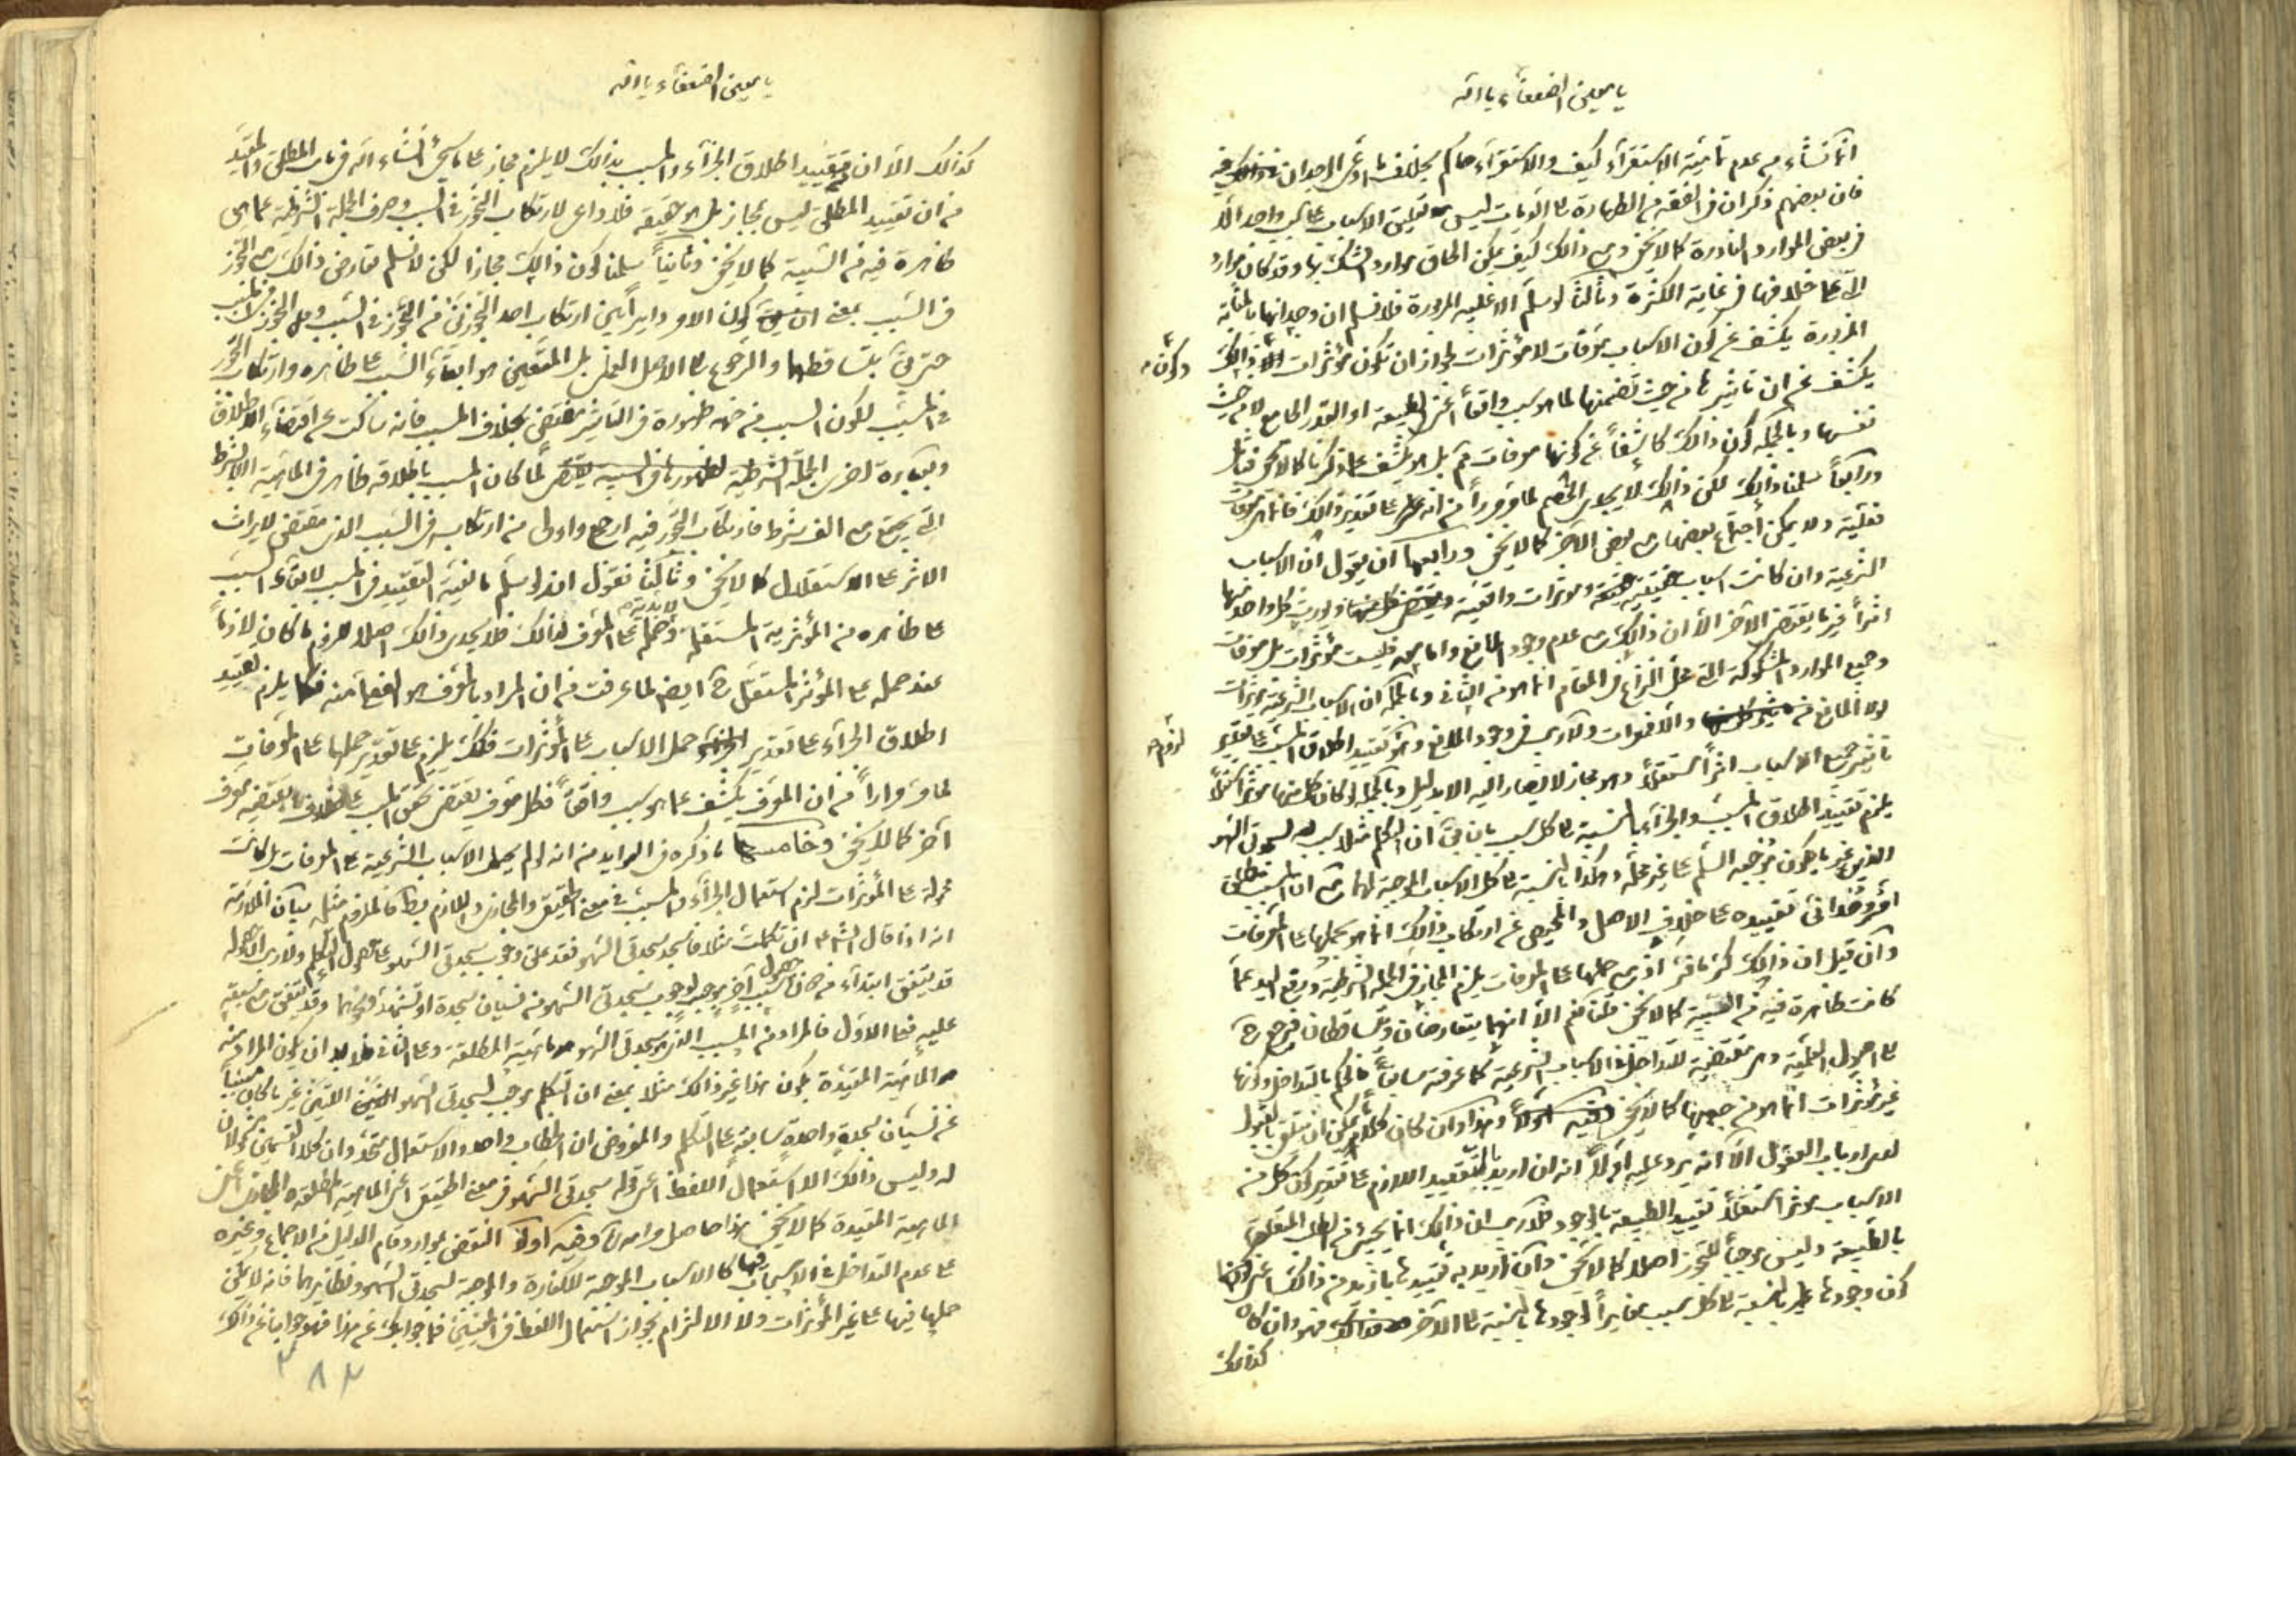 يا معين الضعفاء يا الله
انما نشاء من عدم تمامية الاستقراء كيف والاستقراء حاكم بخلاف ما ادعى الوجدان
فان بعضهم ذكر ان في الفقه من الطهارة الى الديات ليس تعليق الاسباب على سبب واحد الا
في بعض الموارد النادرة كما لا يخفى ومع ذلك كيف يمكن الحاق موارد الشك بها وقد كان موارد
التي على خلافها في غاية الكثرة وثالثا لو سلم الاغلبية المزبورة فلا نسلم ان وجدانها بالمثابة
المزبورة يكشف عن كون الاسباب معرفات لا مؤثرات لجواز ان تكون مؤثرات وكون ذلك
يكشف عن ان تاثيرها من حيث تضمنها لما هو سبب واقعا اعني الطبيعة او القدر الجامع لا من حيث
نفسها وبالجملة كون ذلك كاشفا عن كونها معرفات مم بل هو يكشف عما ذكرنا كما لا يخفى فتامل
ورابعا سلمنا ذلك لكن ذلك لا يجدى الخصم لما مر مرارا من انه على تقدير ذلك فانها معرفات
فعلية ولا يمكن اجتماع بعضها مع بعض الآخر كما لا يخفى ورابعها ان يقول ان الاسباب
الشرعية وان كانت اسباب حقيقية ومؤثرات واقعية ويورث كل واحد منها
اثرا غير ما يقتضي الآخر الا ان ذلك مع عدم وجود المانع واما معه فليست مؤثرات بل معرفات
وجميع الموارد المشكوكة التي محل النزاع في المقام انما هو من الثاني وبالجملة ان الاسباب الشرعية مؤثرات
لولا المانع والا فمعرفات ولا ريب في وجود المانع وهو لزوم تقييد اطلاق المسبب على تقدير
تاثير جميع الاسباب اثرا مستقلا وهو مجاز لا يصار اليه الا بدليل وبالجملة لو كان كل منها مؤثرا مستقلا
يلزم تقييد اطلاق المسبب والجزاء بالنسبة الى كل سبب بان يق ان التكلم مثلا سبب لسجدتي السهو
الذين غير ما يكون موجبه السلم على غير محله وهكذا بالنسبة الى كل الاسباب الموجبة لهما مع ان المسبب مطلق
وتقييده على خلاف الاصل والمحيص عن ارتكاب ذلك انما هو بحملها على المعرفات
وان قيل ان ذلك كر على ما فر اذ مع حملها على المعرفات يلزم المجاز في الجملة الشرطية ورفع اليد عما
كانت ظاهرة فيه من السببية كما لا يخفى قلنا نعم الا انهما يتعارضان ويتساقطان فيرجع ح
الى اصول العملية وهي مقتضية للتداخل في الاسباب الشرعية كما عرفته سابقا فالحكم بالتداخل وكونها
غير مؤثرات انما هو من جهتها كما لا يخفى وهذا وان كان كلاما يمكن ان يتلقى بالقبول
لدى ارباب العقول الا انه يرد عليه اولا انه ان اريد بالتقييد اللازم على تقدير كون كل من
الاسباب مؤثرا مستقلا تقييد الطبيعة بالوجود فلا ريب ان ذلك انما يجيئ من الطلب المتعلق
بالطبيعة وليس موجبا للتجوز اصلا كما لا يخفى وان اريد به تقييدها بازيد من ذلك اعني كونها
كون وجودها بالنسبة الى كل سبب مغايرا لوجودها بالنسبة الى الآخر فهو وان كان
كذلك
يا معين الضعفاء يا الله
كذلك الا ان تقييد اطلاق الجزاء والمسبب بذلك لا يلزم مجاز على ما سيجئ انشاء الله في باب المطلق والمقيد
من ان تقييد المطلق ليس بمجاز بل هو حقيقة فلا داعي لارتكاب التجوز في السبب وصرف الجملة الشرطية عما هي
ظاهرة فيه من السببية كما لا يخفى وثانيا سلمنا كون ذلك مجازا لكن لا نسلم تعارض ذلك مع التجوز
في السبب بمعنى كون الامر دايرا بين ارتكاب احد التجوزين من التجوز في السبب ومن التجوز في المسبب
حتى يق بتساقطهما والرجوع الى الاصل العملي بل المتعين هو ابقاء السبب على ظاهره وارتكاب التجوز
في المسبب لكون السبب من جهة ظهوره في التاثير مقتض بخلاف المسبب فانه ساكت عن اقتضاء الاطلاق
وبعبارة اخرى الجملة الشرطية لظهورها في السببية يقتضي لما كان المسبب باطلاقه ظاهر في الماهية اللابشرط
التي يجتمع مع الف شرط فارتكاب التجوز فيه ارجح واولى من ارتكابه في السبب الذي مقتضى لايراث
الاثر على الاستقلال كما لا يخفى وثالثا نقول انه لو سلم مانعية التقييد في المسبب لابقاء السبب
على ظاهره من المؤثرية المستقلة ولابدية حمله على المعرف لذلك فلا يجدى ذلك اصلا لزوم ما كان لازما
عند حمله على المؤثر المستقل ح ايضا لما عرفت من ان المراد بالمعرف هو الفعلي منه فكما يلزم تقييد
اطلاق الجزاء على تقدير حمل الاسباب على المؤثرات فكك يلزم على تقدير حملها على المعرفات
لما مر مرارا من ان المعرف يكشف عما هو سبب واقعا فكل معرف يقتضي تحقق المسبب على خلاف ما يقتضيه معرف
آخر كما لا يخفى وخامسها ما ذكره في العوايد من انه لو لم يحمل الاسباب الشرعية على المعرفات بل كانت
محمولة على المؤثرات لزم استعمال الجزاء والمسبب في معنى الحقيقي والمجازي واللازم بط فالملزوم مثله بيان الملازمة
انه اذا قال الشارع ان تكلمت مثلا فاسجد سجدتي السهو فقد علق وجوب سجدتي السهو على حصول التكلم ولا ريب ان حصوله
قد يتفق ابتداء من دون حصول سبب آخر يوجب لوجوب سجدتي السهو من نسيان سجدة او تشهد ونحوهما وقد يتفق مع سبقه
عليه فعلى الاول فالمراد من المسبب الذي هو سجدتي السهو هو ماهية المطلقة وعلى الثاني فلا بد ان يكون المراد منه
هو الماهية المقيدة بكون هذا غير ذلك مثلا بمعنى ان التكلم موجب لسجدتي السهو اللتين غير ما كان مسببا
عن نسيان سجدة واحدة سابقة على التكلم والمفروض ان الخطاب واحد والاستعمال متحد وان كلا القسمين مدلولان
له وليس ذلك الا استعمال اللفظ اعني قوله سجدتي السهو في معنى الحقيقي اعني الماهية المطلقة والمجازي اعني
الماهية المقيدة كما لا يخفى هذا حاصل مرامه وفيه اولا النقض بموارد قام الدليل من الاجماع وغيره
على عدم التداخل في الاسباب فيها كالاسباب الموجبة للكفارة والموجبة لسجدتي السهو ونظايرهما فانه لا يمكن
حملها فيها على غير المؤثرات ولا الالتزام بجواز استعمال اللفظ في المعنيين فما جوابك عن هذا فهو جوابنا عن ذلك